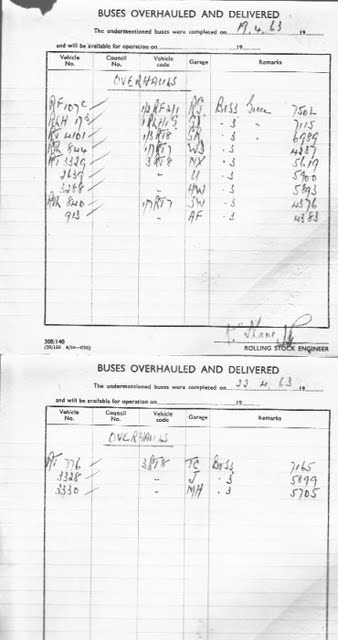 BUSES OVERHAULED AND DELIVERED
The undermentioned buses were completed on 19. 4. 63 19
and will be available for operation on 19
Vehicle No. Council No. Vehicle code Garage Remarks
OVERHAULS
RF 107C RG Body 7502
RLH 17 7115
RT 4101 1/3RT8 SR .3 6989
844 1/7RT7 .3 4237
RT 3329 3RT8 NX .3 5619
2639 - U .3 5900
3288 - HW .3 5893
840 1/7RT7 SW .3 4376
913 AF .3 4383
308/140
ROLLING STOCK ENGINEER
BUSES OVERHAULED AND DELIVERED
The undermentioned buses were completed on 22 4. 63 19
and will be available for operation on 19
Vehicle No. Council No. Vehicle code Garage Remarks
OVERHAULS
RT 776 3RT8 TC 7165
3328 - J .3 5899
3330 - MH .3 5705